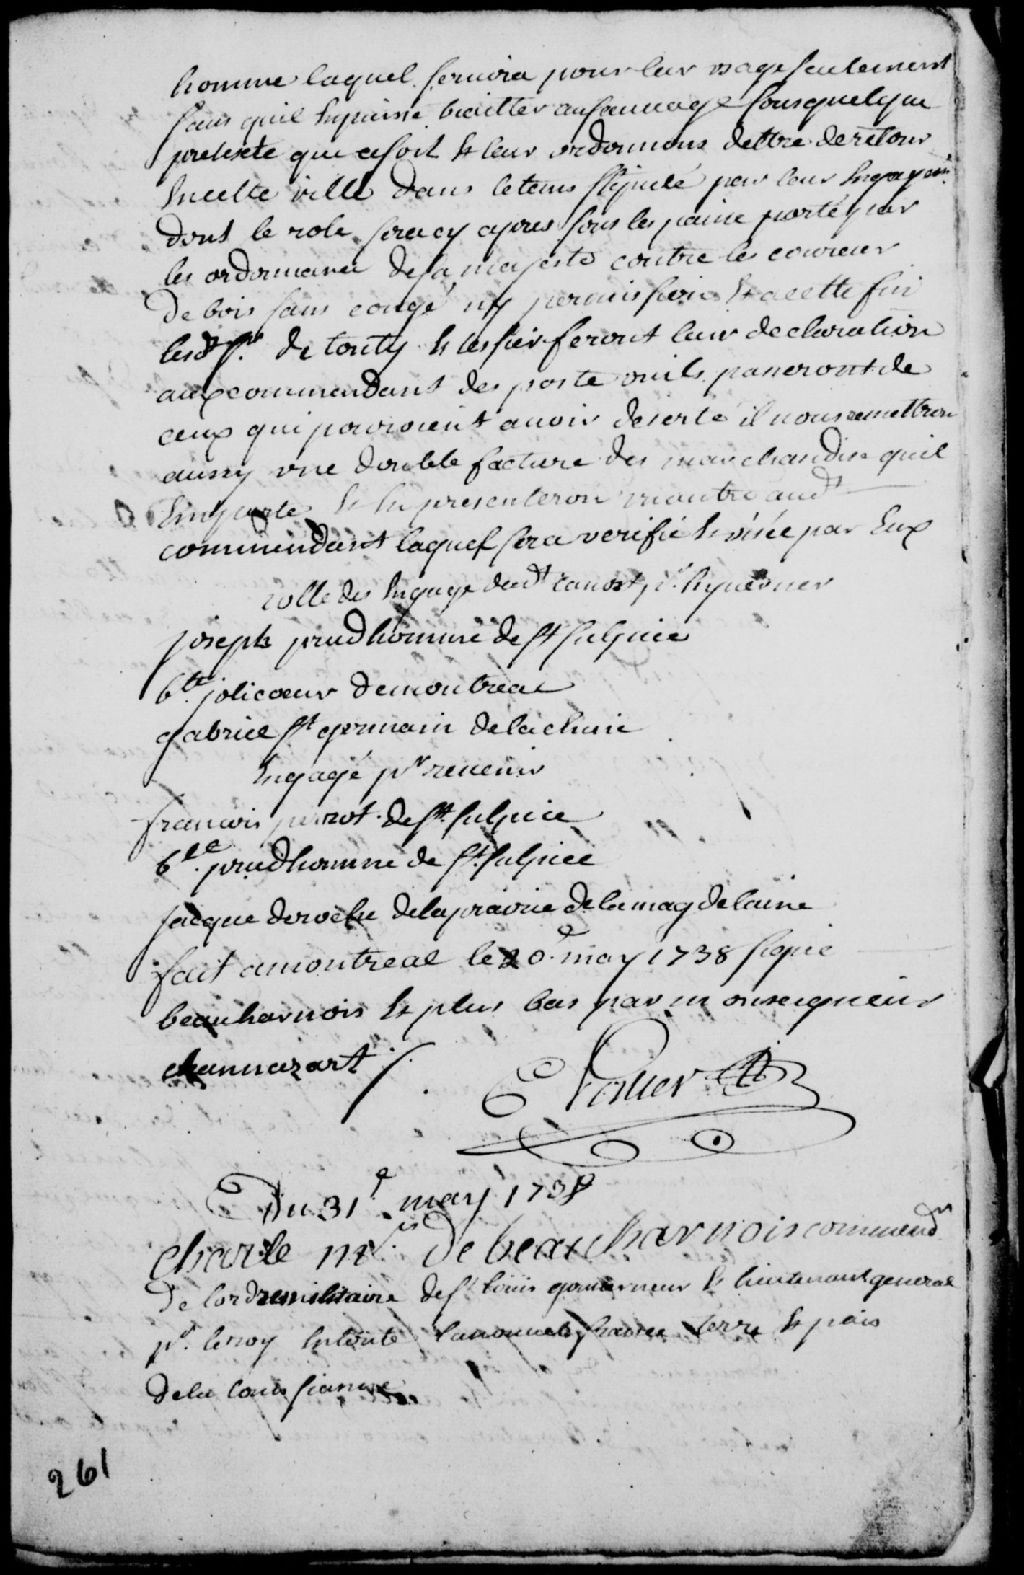 homme laquel servira pour leur usage seulement
sans quil Enpuisse traitter au sauvage sousquelque
pretexte que cesoit Et leur ordonnons dettre de retour
Encette ville dans letems stipulé par leur Engagemt
dont le role sera cy apres sous les paine porté par
les ordonnance de sa majesté contre les coureur
de bois sans congé ny permission Et acette fin
lesdt Sr. de tonty Et feront leur declaration
aux commendant des poste ouils passeront de
ceux qui pouroient avoir deserté il nous remettron
aussy une double facture des marchandise quil
Emporte Et En presenteron audt
commendant laquel sera verifié Et visée par Eux
rolle des Engagé dudt canot pr.
joseph prudhomme de St sulpice
bte. jolicoeur de montreal
gabriel St germain de lachine
Engagé pr revenir
francois de St sulpice
bte. prudhomme de St sulpice
jacque deroche delaprairie de lamagdelaine
fait a montreal le 20e may 1738 signé
beauharnois Et plus bas par monseigneur
chanuazart /.
Porlier
Du 31e. may 1738
charle mis. de beauharnois commendr
de lordre militaire de St louis gouverneur Et lieutenant general
pr. le roy Entoute la nouvelle france terre Et païs
de la louissianne
261